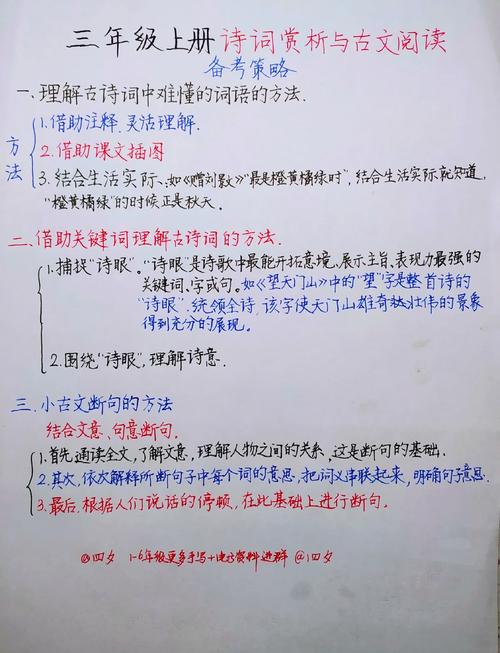 三年级上册诗词赏析与古文阅读
备考策略
一、理解古诗词中难懂的词语的方法.
方法
1.借助注释.灵活理解.
2.借助课文插图
3.结合生活实际、如《赠刘景文》"最是橙黄橘绿时",结合生活实际就知道,
"橙黄橘绿"的时候正是秋天.
二、借助关键词理解古诗词的方法.
1.捕捉"诗眼"."诗眼"是诗歌中最能开拓意境、展示主旨、表现力最强的
关键词、字或句。如《望天门山》中的"望"字是整首诗的
"诗眼".统领全诗.该字使天门山雄奇壮伟的景象
得到充分的展现。
2.围绕"诗眼".理解诗意.
三.小古文断句的方法
结合文意、句意断句.
1.首先通读全文,了解文意,理解人物之间的关系,这是断句的基础.
2.其次,依次解释所断句子中每个词的意思,把词义串联起来,明确句子意思.
3.最后.根据人们说话的停顿,在此基础上进行断句.
@四夕 1-6年级更多手写+电子资料进群 @四夕